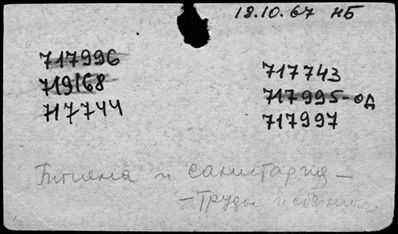 18.10.67 НБ
717996
719168
717744
717743
717995-од
717997
Гигиена и санитария -
- Труды и сборники